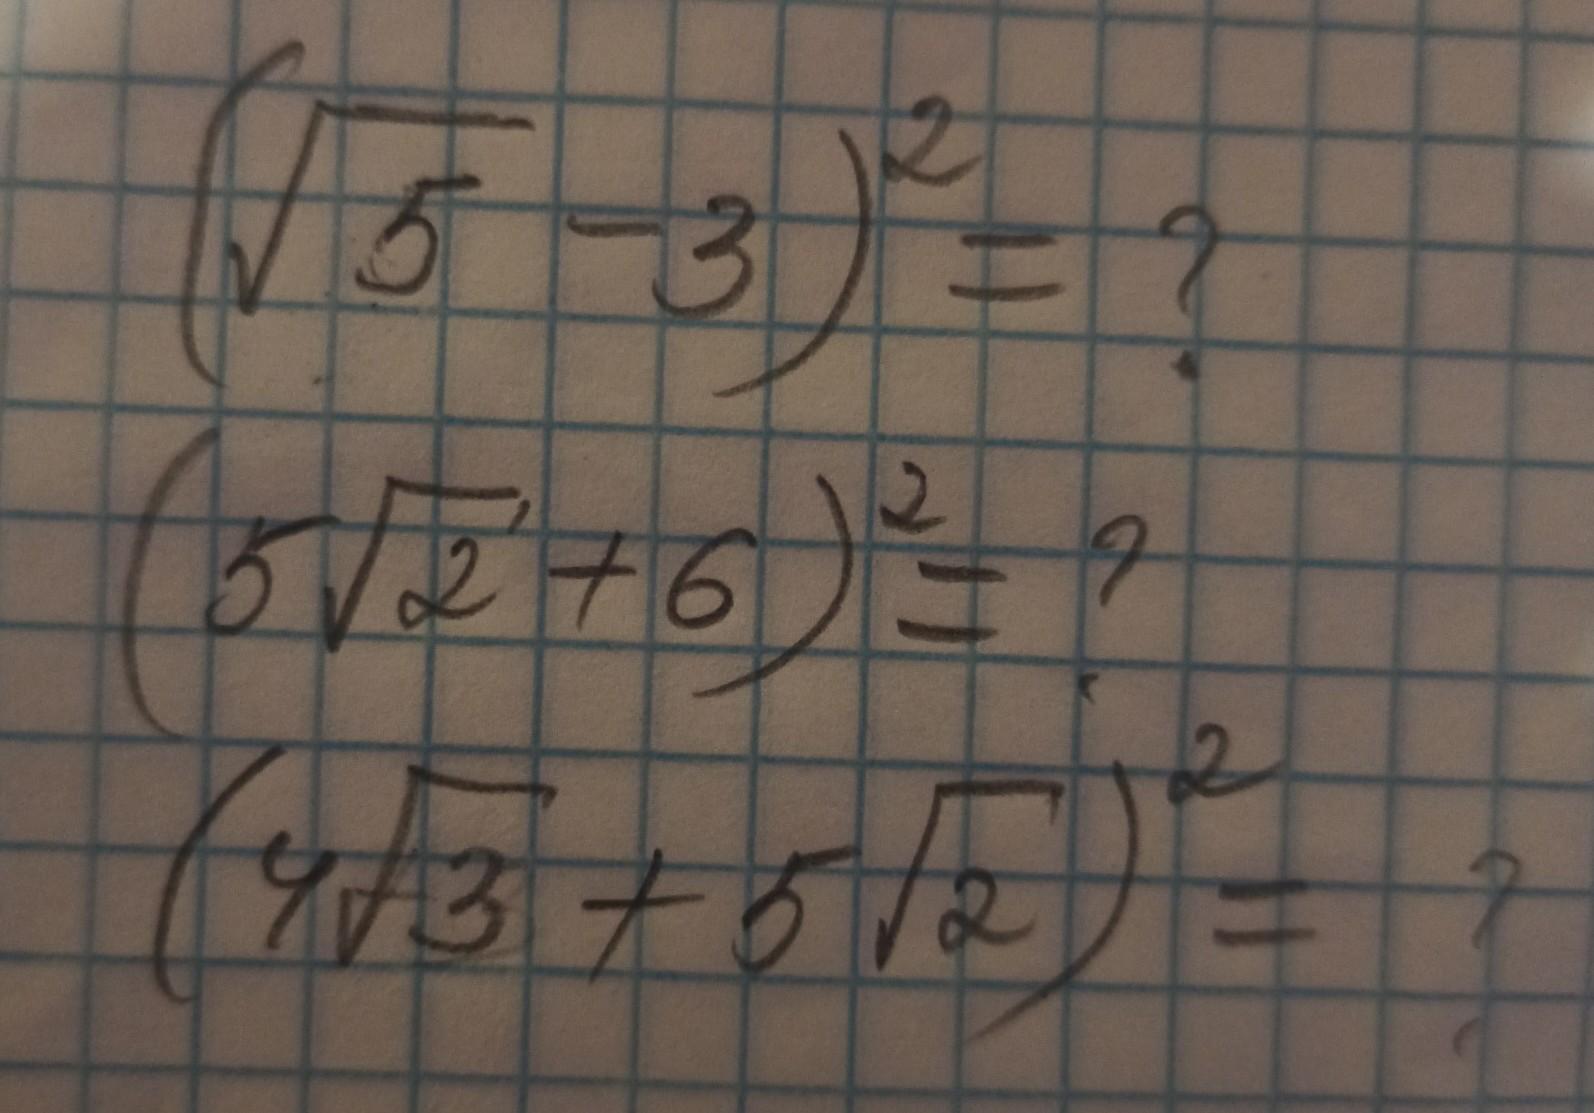 (√5 - 3)² = ?
(5√2 + 6)² = ?
(4√3 + 5√2)² = ?